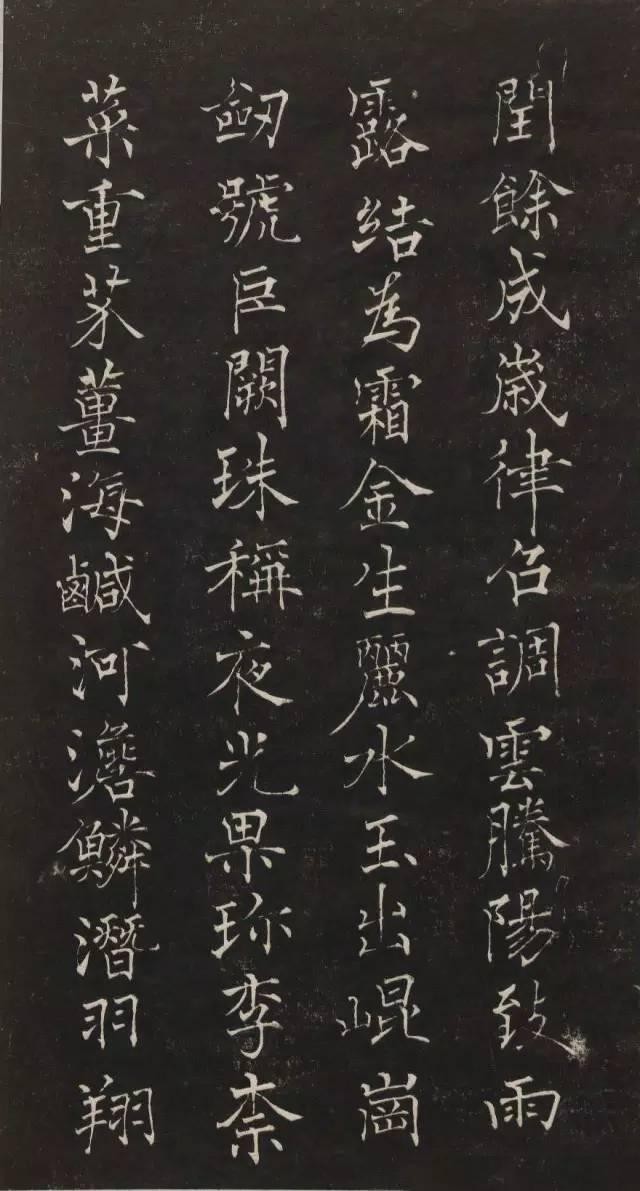 閏餘成嵗律召調雲騰陽致雨
露結為霜金生麗水玉出崐崗
劒號巨闕珠稱夜光果珎李柰
菜重芥薑海鹹河澹鱗潛羽翔